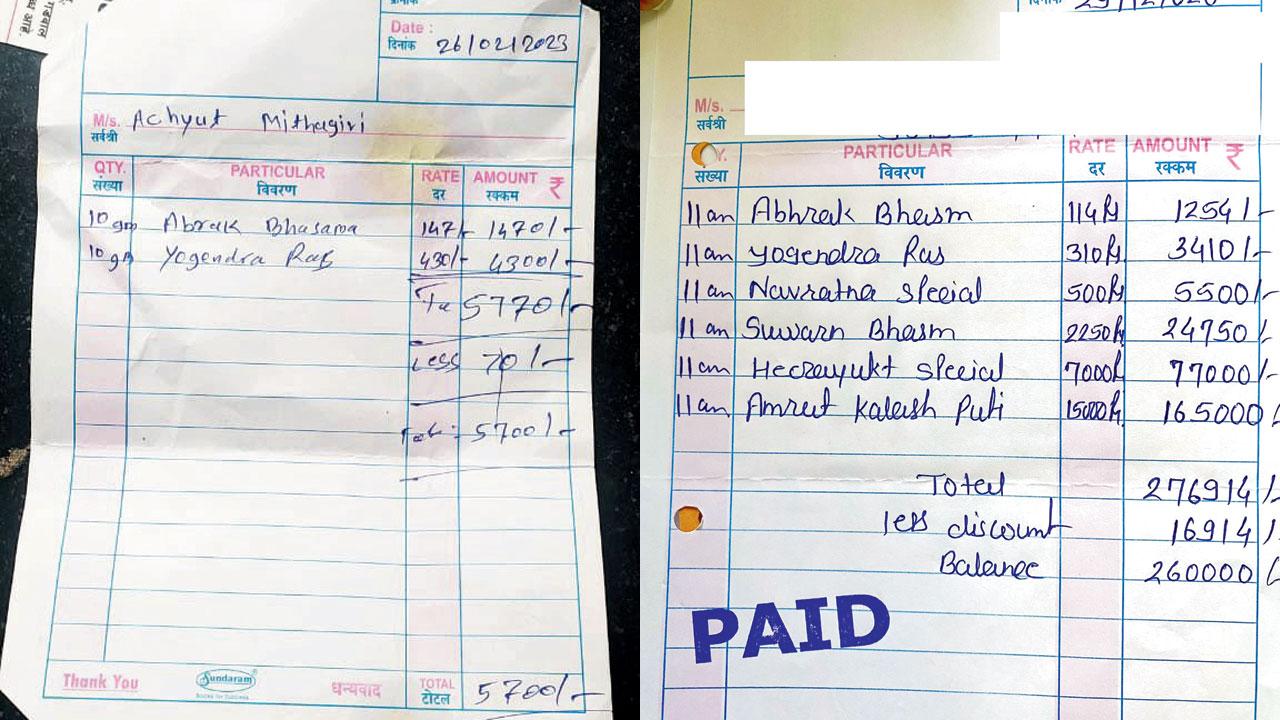 Date :
दिनांक 26/02/2023
M/s. Achyut Mithagiri
सर्वश्री
QTY. PARTICULAR RATE AMOUNT ₹
संख्या विवरण दर रक्कम
10 gm Abrak Bhasama 147/- 1470/-
10 gm Yogendra Ras 430/- 4300/-
5770/-
Less 70/-
5700/-
Thank You Sundaram धन्यवाद TOTAL 5700/-
टोटल
M/s.
सर्वश्री
PARTICULAR RATE AMOUNT ₹
संख्या विवरण दर रक्कम
11 an Abhrak Bhasm 114 Rs 1254/-
11 an Yogendra Ras 310 Rs 3410/-
11 an Navratna Speeial 500 Rs 5500/-
11 an Suwarn Bhasm 2250 Rs 24750/-
11 an Heerayukt Speeial 7000 Rs 77000/-
11 an Amrut Kalash Puti 15000 Rs 165000/
Total 276914/-
less discount 16914/
Balance 260000
PAID